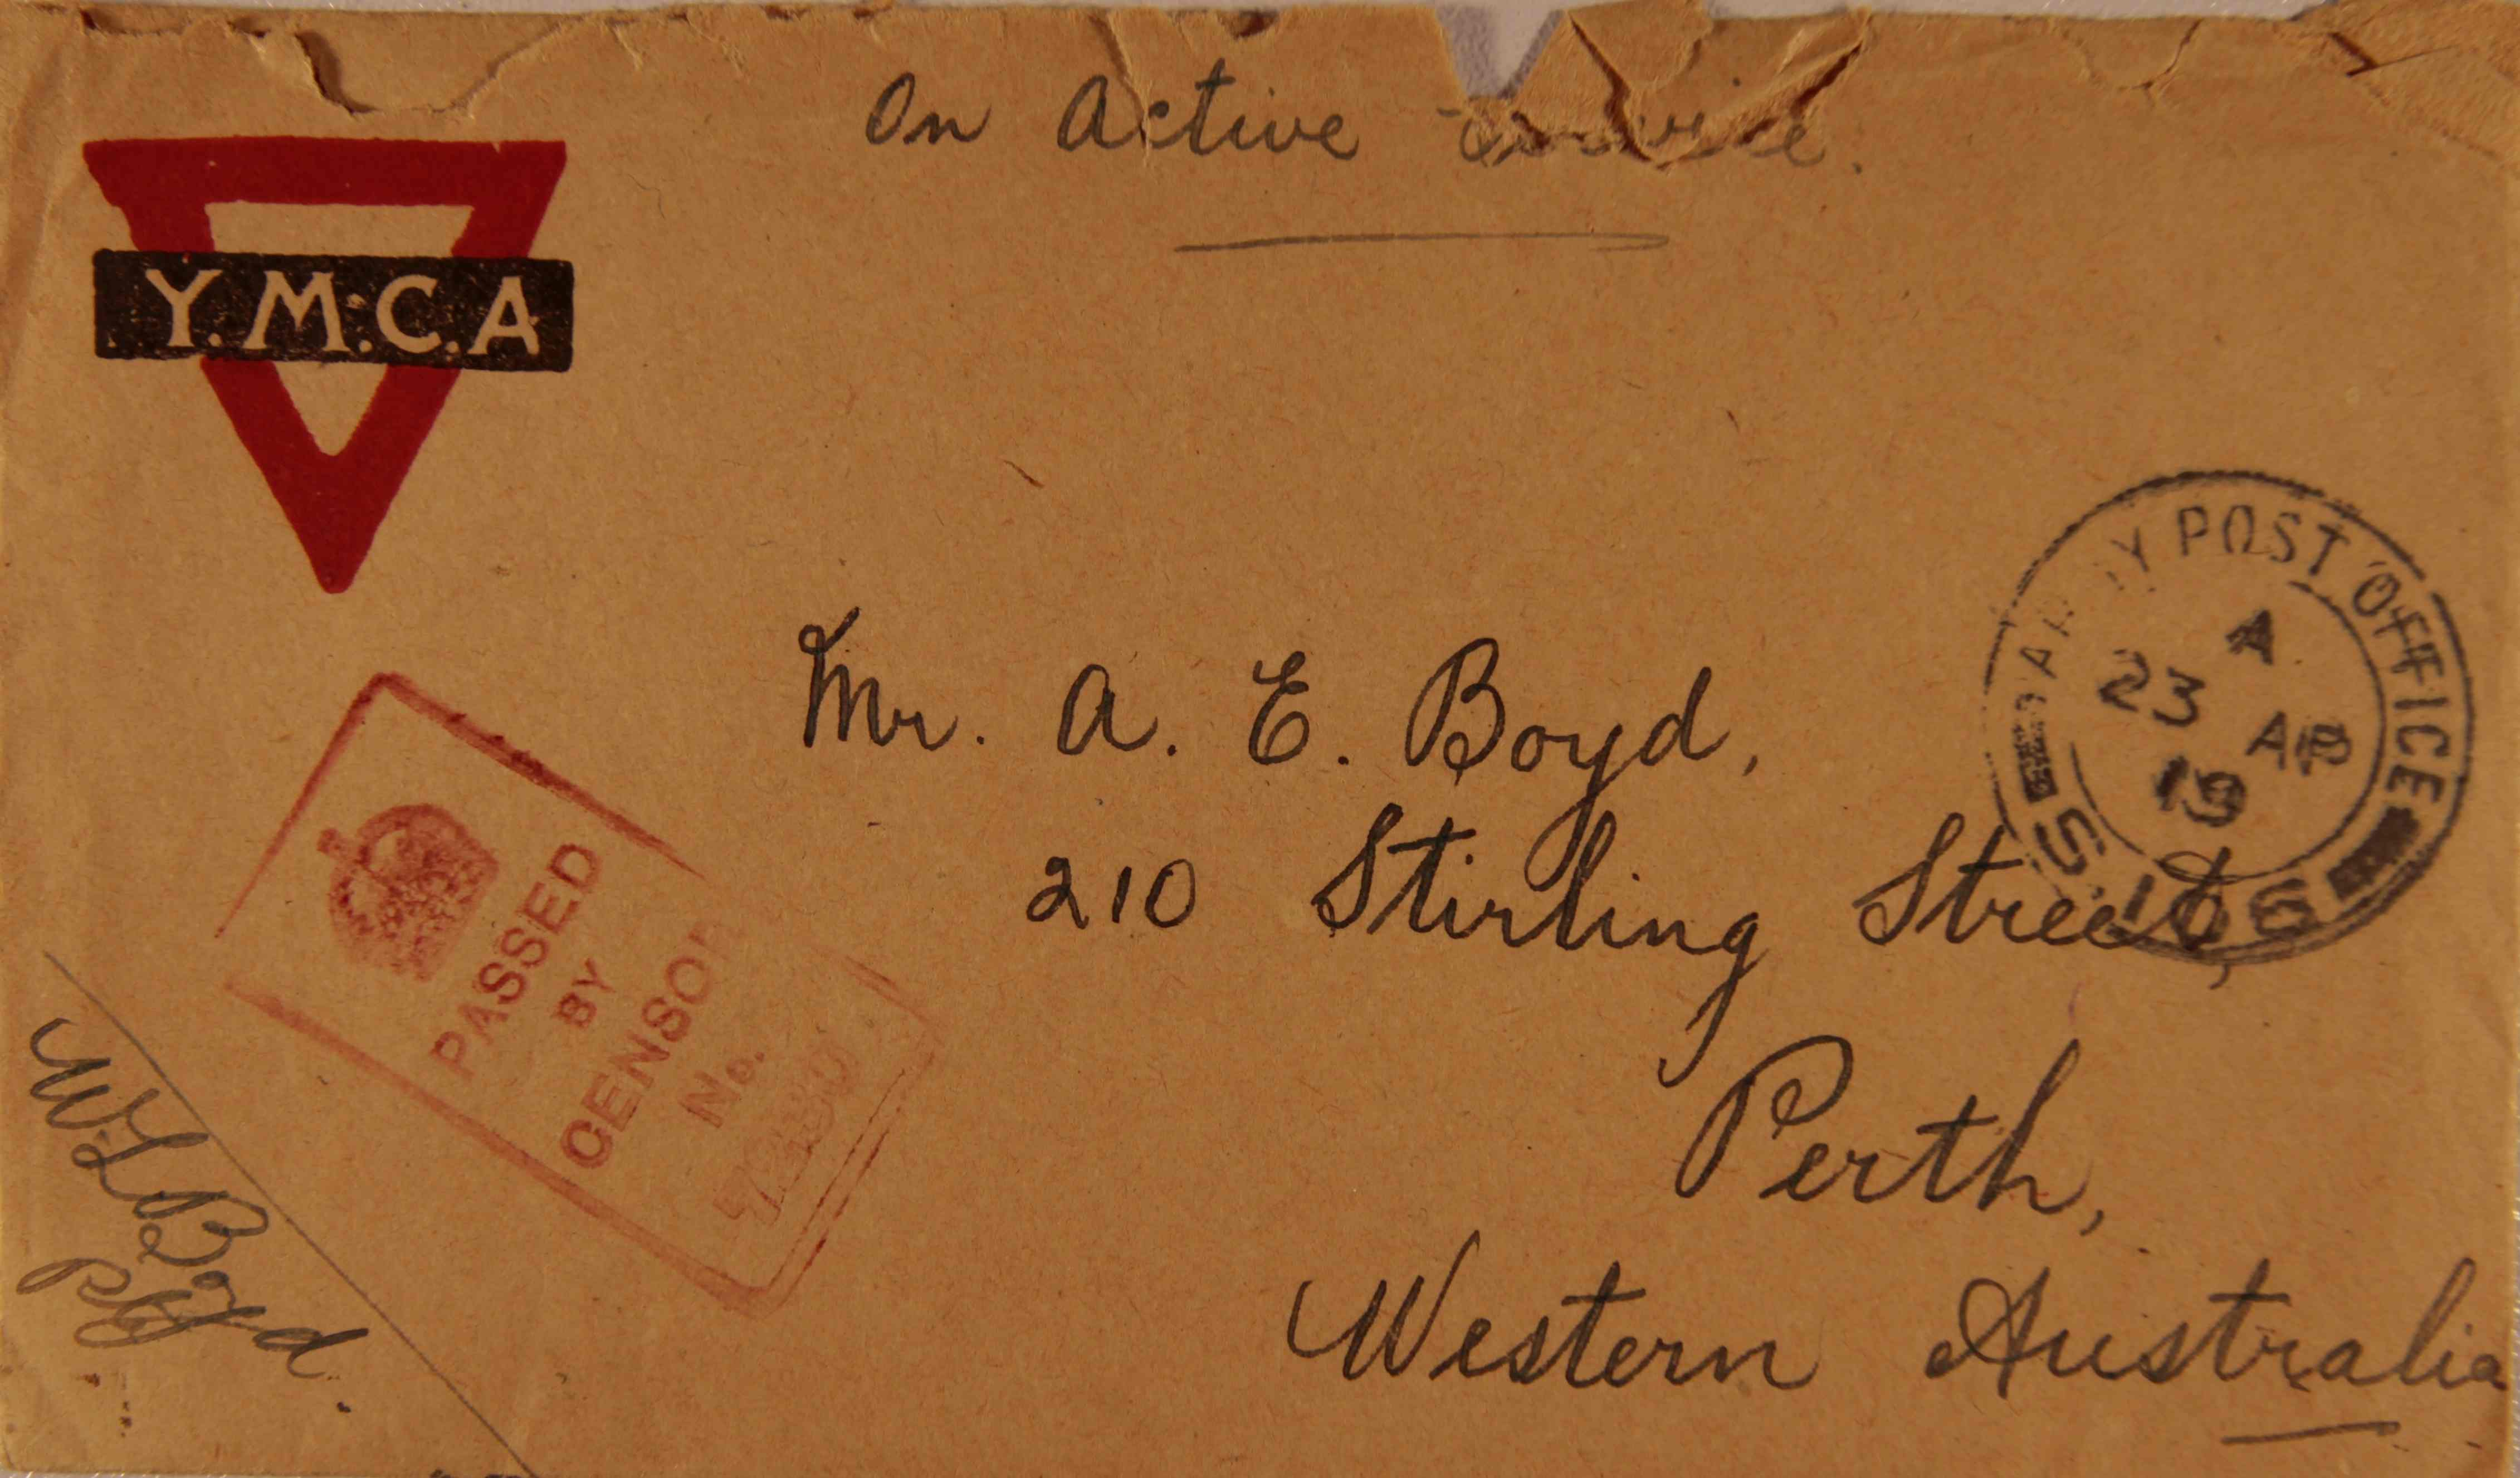 On Active Service.
Y.M.C.A
ARMY POST OFFICE
A
23 AP
19
S. 106
Mr. A. E. Boyd,
210 Stirling Street,
Perth,
Western Australia
PASSED
BY
CENSOR
No.
W L Boyd.